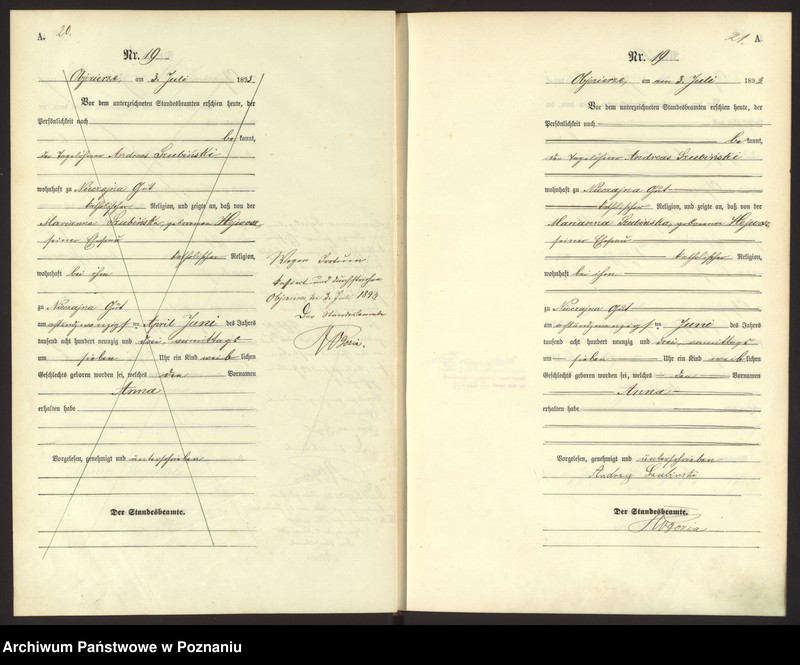 A. 20.
Nr. 19
Objezierze, am 3. Juli 1893.
Vor dem unterzeichneten Standesbeamten erschien heute, der
Persönlichkeit nach
be kannt,
der Tagelöhner Andreas Szubiński
wohnhaft zu Nieczajna Gut
katholischer Religion, und zeigte an, daß von der
Marianna Szubińska, geborenen
seiner Ehefrau
katholischer Religion,
wohnhaft bei ihm
zu Nieczajna Gut
am achtundzwanzigsten April Juni des Jahrs
tausend acht hundert neunzig und drei, vormittags
um sieben Uhr ein Kind weib lichen
Geschlechts geboren worden sei, welches den Vornamen
Anna
erhalten habe
Vorgelesen, genehmigt und unterschrieben
Der Standesbeamte.
Wegen Irrtum
kassiert und durchstrichen
Objezierze, den 3. Juli 1893
Der Standesbeamte
21. A
Nr. 19
Objezierze, am 3. Juli 1893
Vor dem unterzeichneten Standesbeamten erschien heute, der
Persönlichkeit nach
be kannt,
der Tagelöhner Andreas Szubiński
wohnhaft zu Nieczajna Gut
katholischer Religion, und zeigte an, daß von der
Marianna Szubińska, geborenen
seiner Ehefrau
katholischer Religion,
wohnhaft bei ihm
zu Nieczajna Gut
am achtundzwanzigsten Juni des Jahrs
tausend acht hundert neunzig und drei, vormittags
um sieben Uhr ein Kind weib lichen
Geschlechts geboren worden sei, welches den Vornamen
Anna
erhalten habe
Vorgelesen, genehmigt und unterschrieben
Andrzej Szubinski
Der Standesbeamte.
Archiwum Państwowe w Poznaniu